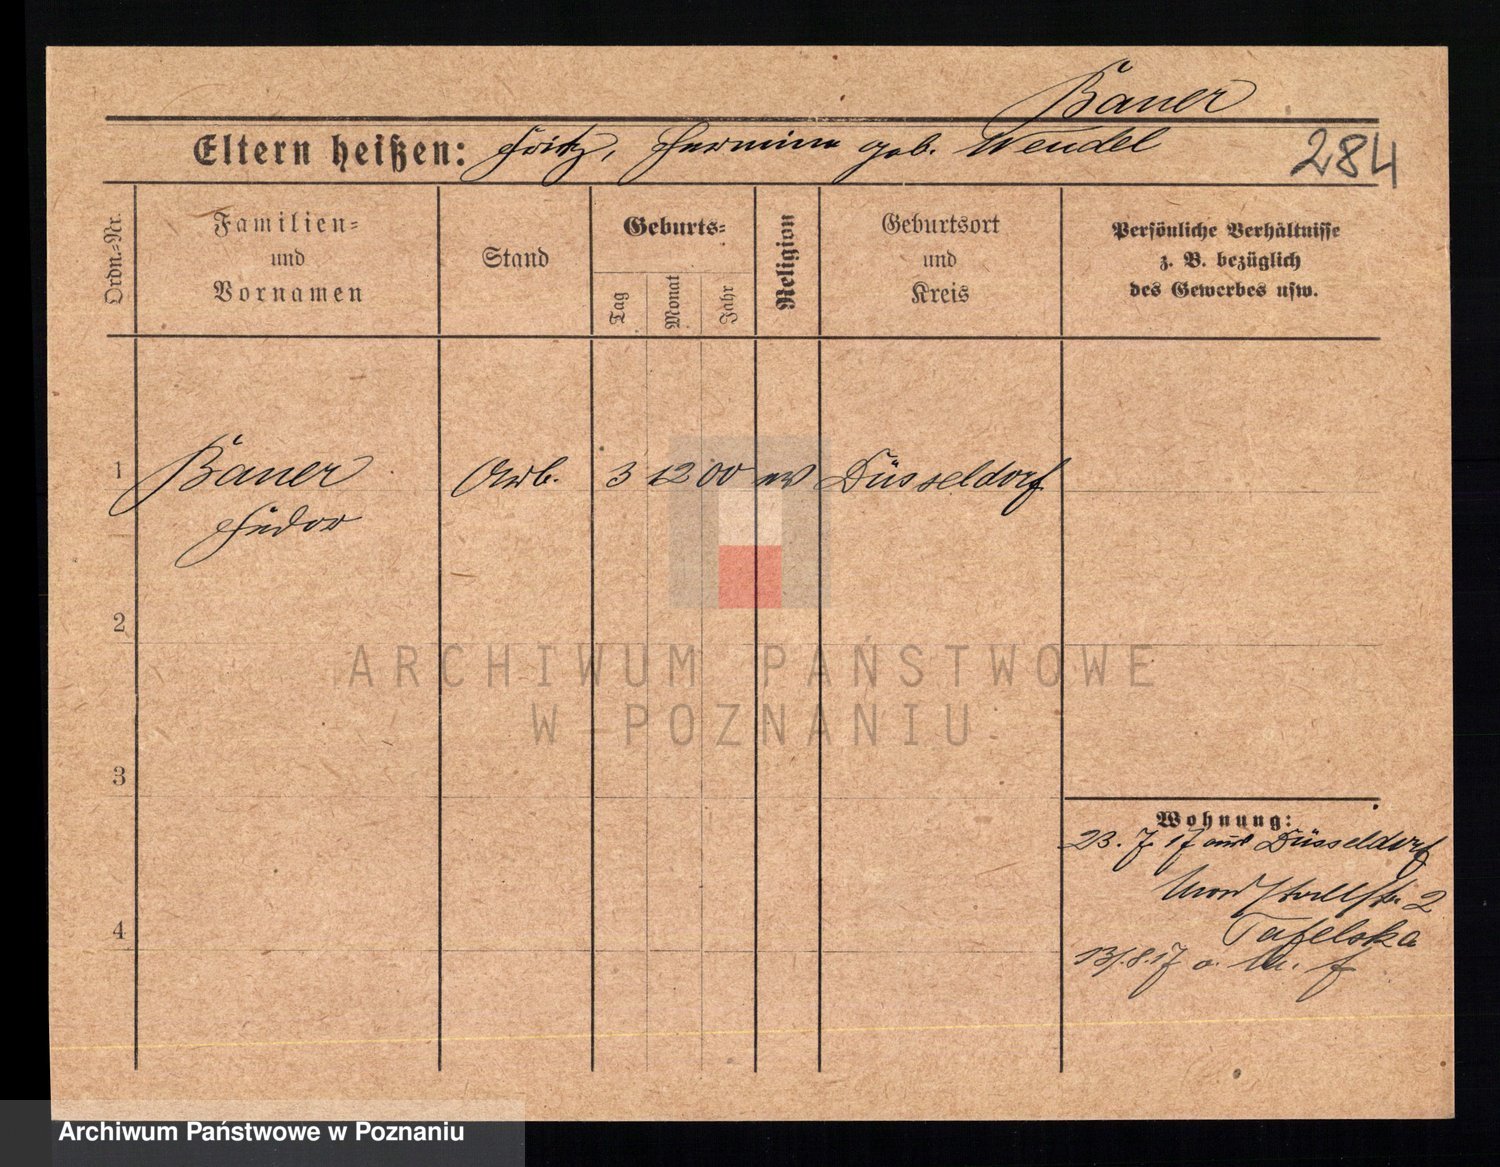 Bauer
Eltern heißen: Fritz, Hermine geb. Wendel
284
Ordn.-Nr.
Familien-
und
Vornamen
Stand
Geburts-
Tag
Monat
Jahr
Religion
Geburtsort
und
Kreis
Persönliche Verhältnisse
z. B. bezüglich
des Gewerbes usw.
1
Bauer
Arb.
3
12
00
ev
Düsseldorf
Fedor
2
ARCHIWUM PAŃSTWOWE
W POZNANIU
3
Wohnung:
23. 7. 17 aus Düsseldorf
2
Tafelska
4
13/8.17
Archiwum Państwowe w Poznaniu